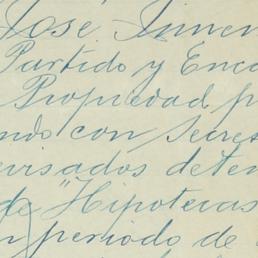 José Jimen
Partido y Enca
Propiedad p
ando con Secre
visados deten
de "Hipotecas
n periodo de